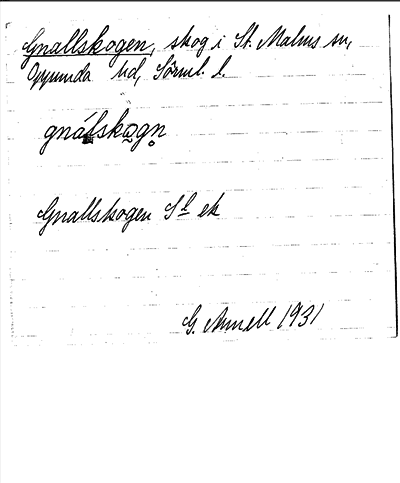 Gnallskogen, skog i St. Malms sn,
Oppunda hd, Sörml. l.
gnálskogn̥
Gnallskogen Sl ek
G. Annell 1931